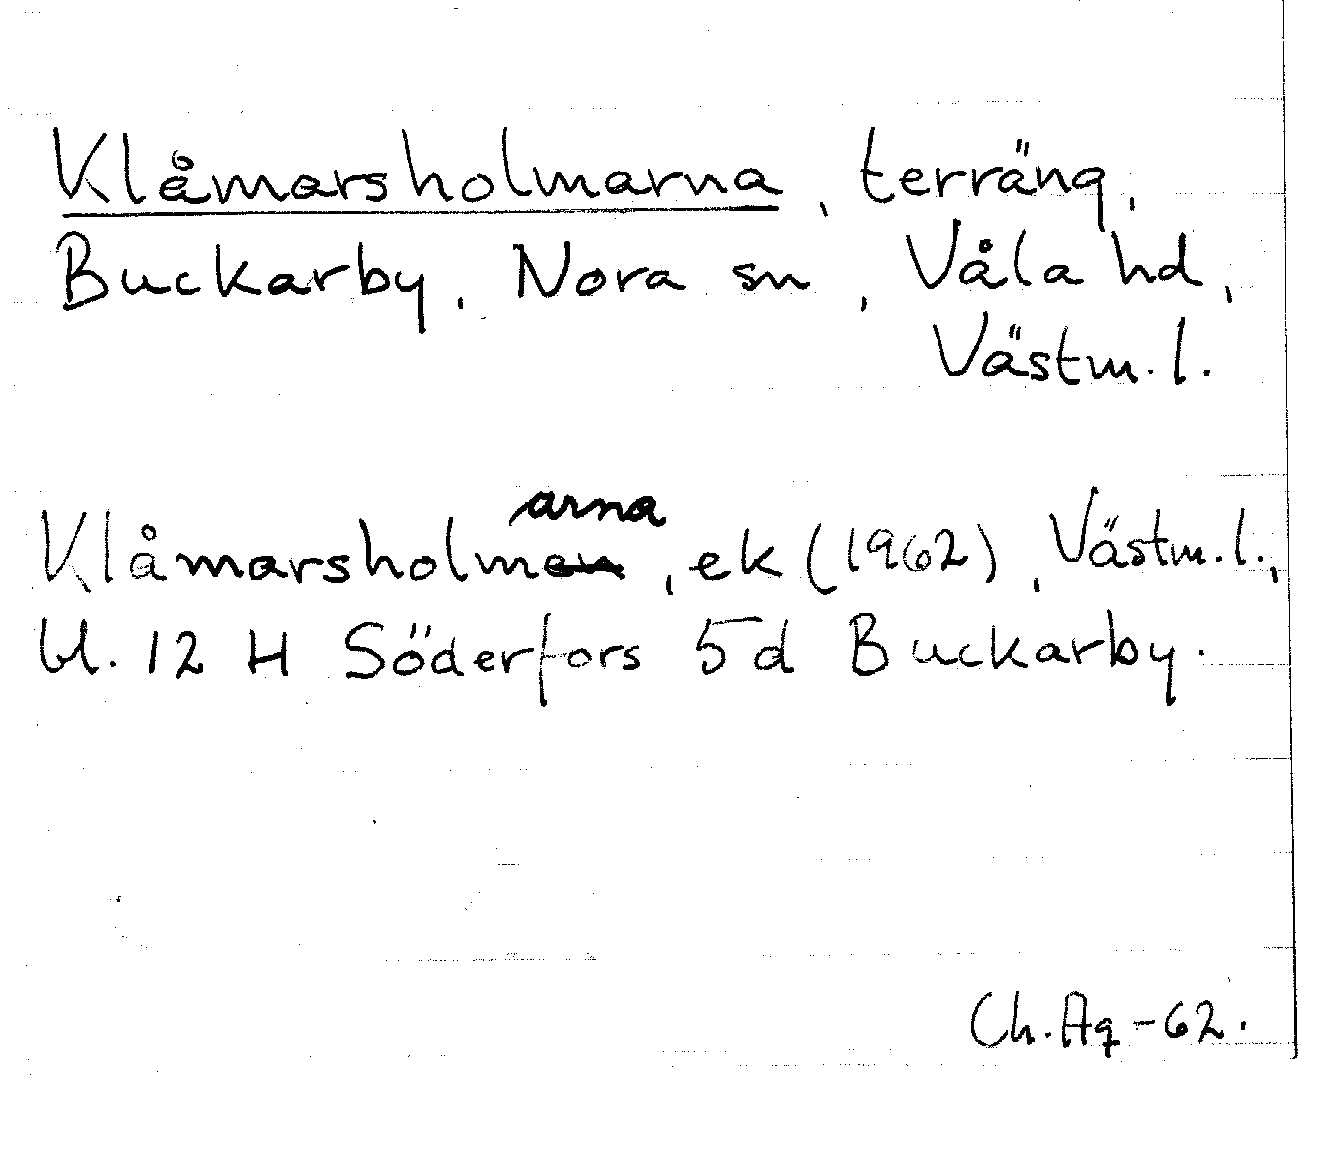 Klåmarsholmarna, terräng,
Buckarby, Nora sn, Våla hd,
Västm. l.
arna
Klåmarsholmen, ek (1962), Västm. l.,
U. 12 H Söderfors 5d Buckarby.
Ch. Ag -62.